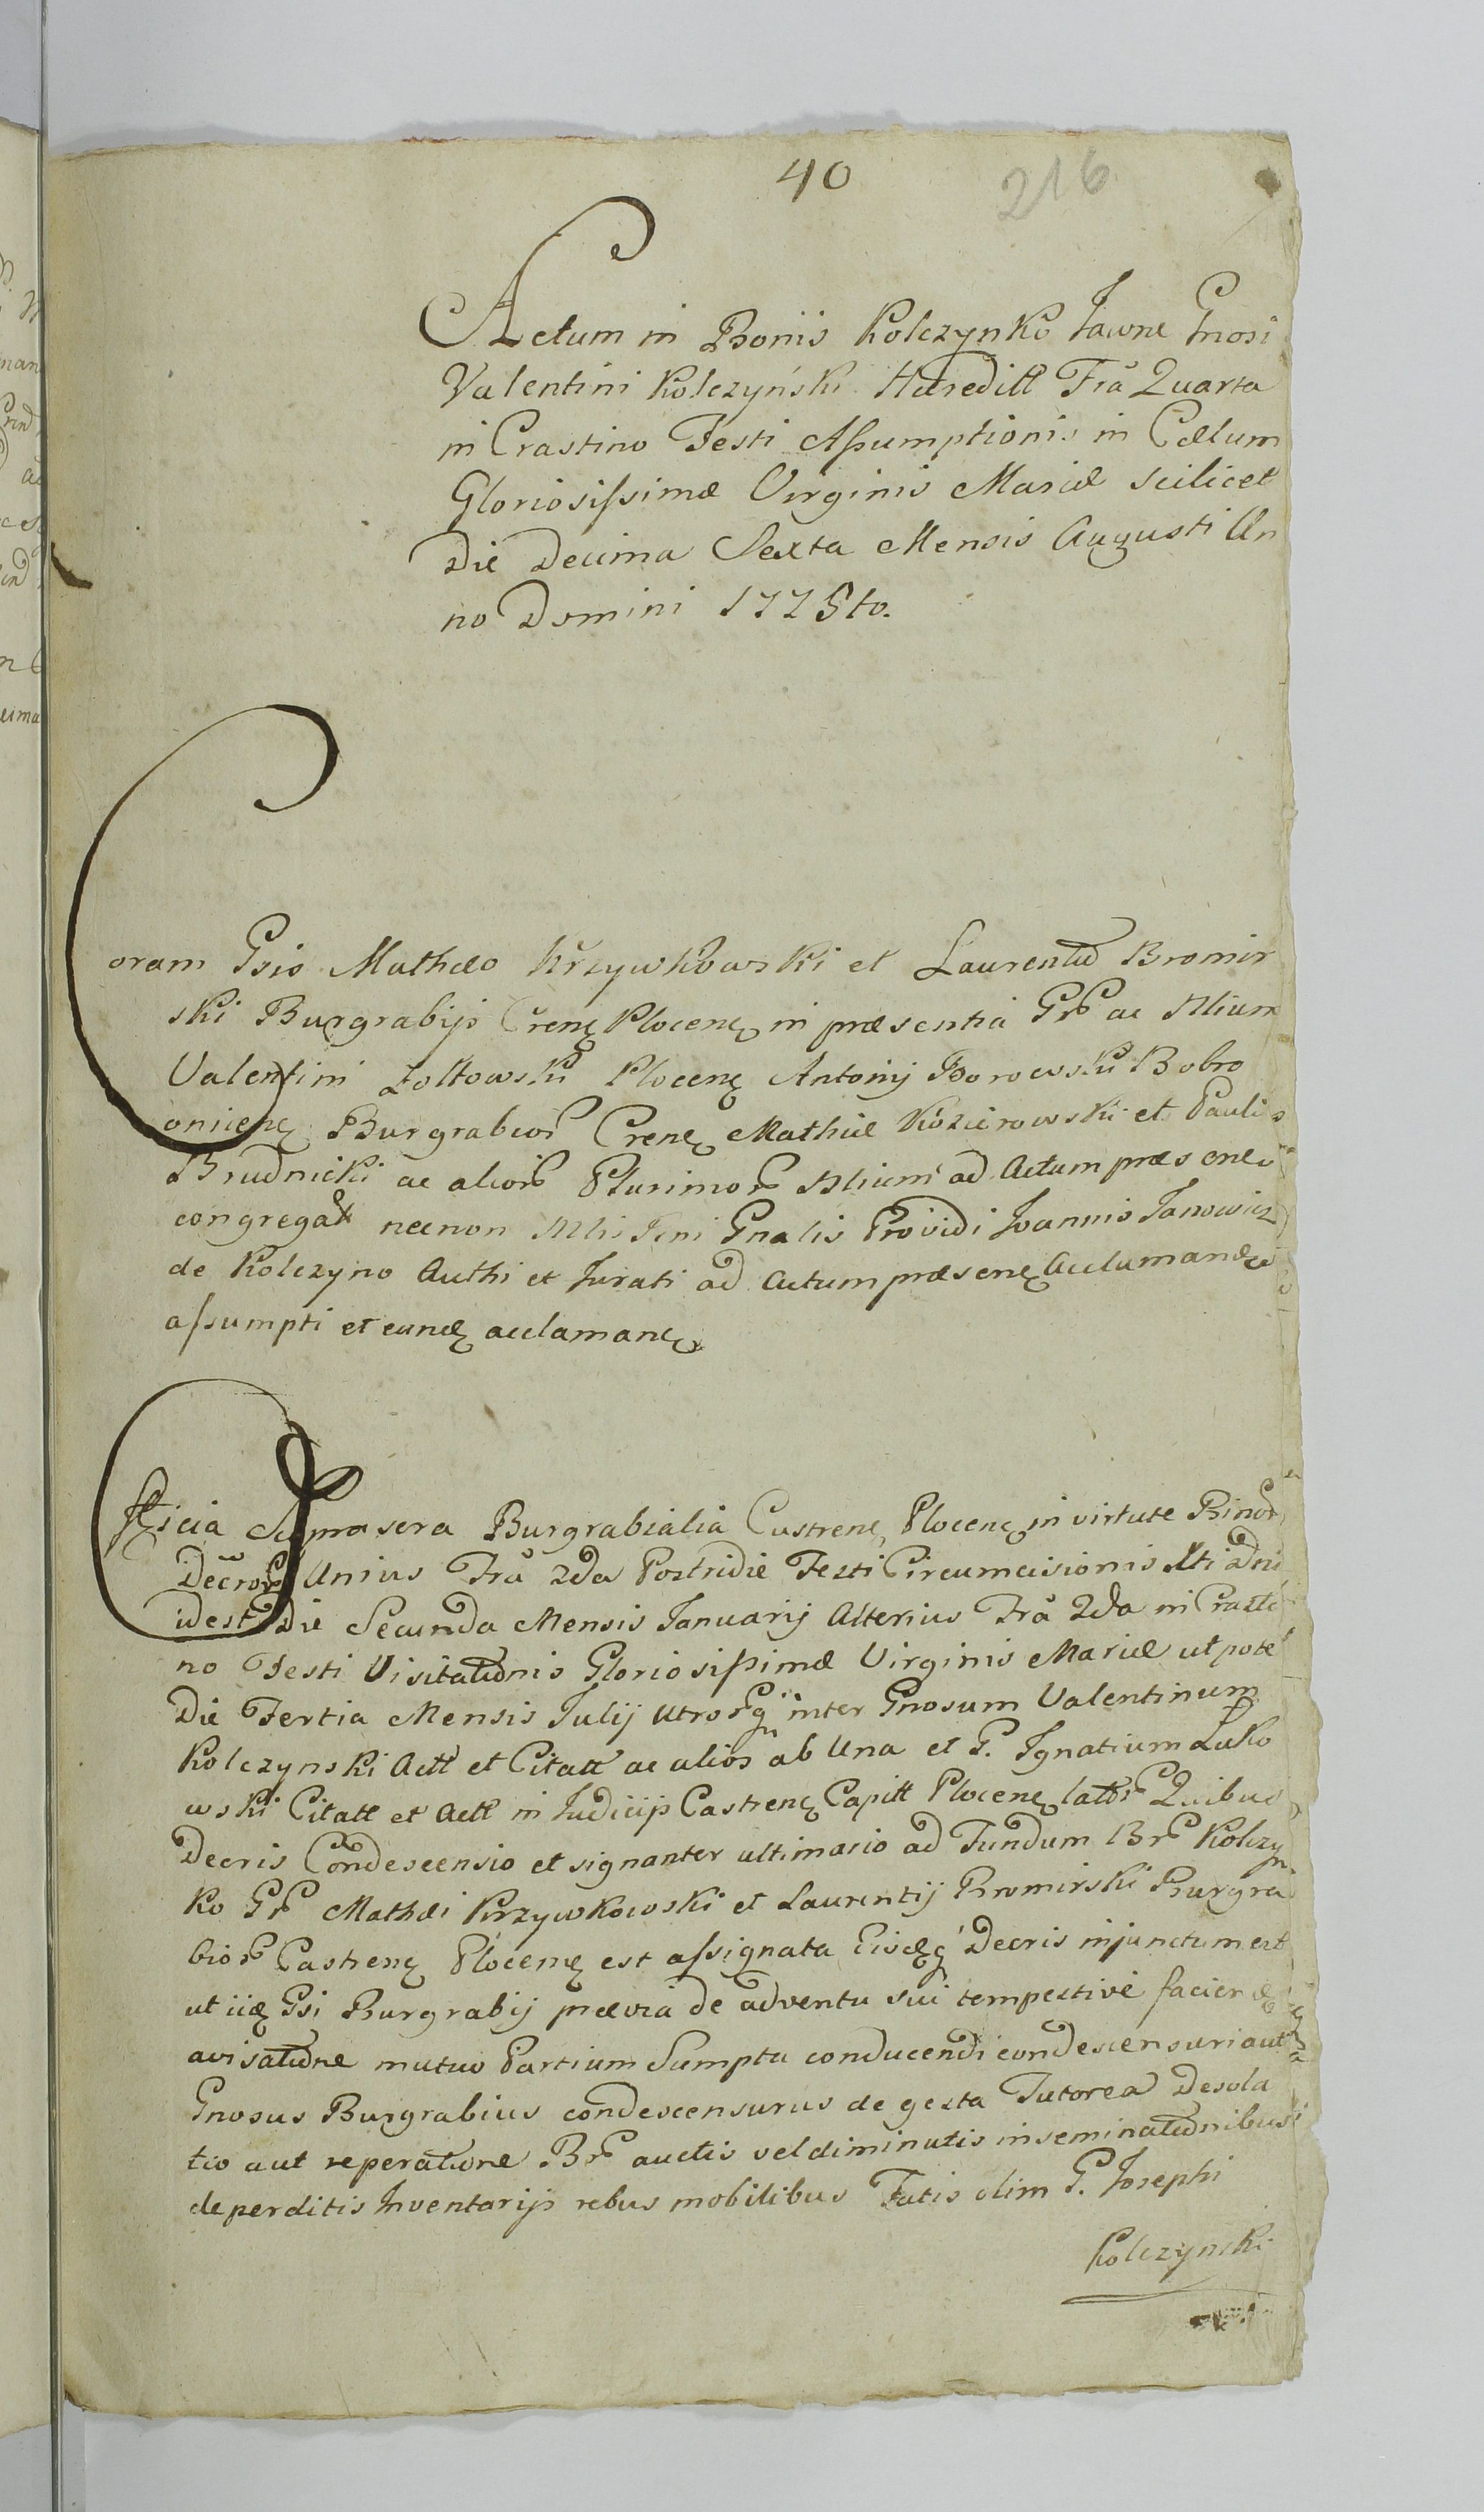 40
216
Actum in Bonis Kolczynko Jawne Gnosi
Valentini Kolczyński Hæreditt Fra Quarta
in Crastino Festi Assumptionis in Cælum
Gloriosissimæ Virginis Mariæ scilicet
Die Decima Sexta Mensis Augusti An
no Domini 1775to.
Coram Gsis Mathæo Krzywkowski et Laurentio Bromir
ski Burgrabijs Crenę Plocenę in præsentia Gr ac Nlium
Valentini Zoltowski Plocenę Antonij Borowski Bobro
onicenę Burgrabior Crenę Mathiæ Kozierowski et Pauli
Brudnicki ac alior Plurimor Nlium ad Actum præsenę
congregat necnon Mlis Jeni Gnalis Providi Joannis Janowicz
de Kolczyno Authi et Jurati ad actum præsenę Acclamandę
assumpti et eundę acclamanę
Officia Burgrabialia Castrenę Plocenę in virtute Binor
Decror Unius Fra 2da Postridie Festi Circumcisionis Xti Dni
idest Die Secunda Mensis Januarij Alterius Fra 2da in Crasti
no Festi Visitationis Gloriosissimæ Virginis Mariæ utpote
Die Tertia Mensis Julij utrorq inter Gnosum Valentinum
Kolczynski Actt et Citatt ac alios ab Una et G. Ignatium Luko
wski Citatt et Actt in Judicijs Castrenę Capitt Plocenę lattor Quibus
Decris Condescensio et signanter ultimario ad Fundum Br Kolczyn
ko Gr Mathæi Krzywkowski et Laurentij Bromirski Burgra
bior Castrenę Plocenę est assignata Eisdęq Decris injunctum est
ut iidę Gsi Burgrabij prævia de adventu sui tempestive faciendę
avisatione mutuo Partium Sumptu conducendi condescensuri aut
Gnosus Burgrabius condescensurus de gesta Tutorea Desola
tio aut reperatione Br auctis vel diminutis inseminationibus
deperditis Inventarijs rebus mobilibus Fatis olim G. Josephi
Kolczynski